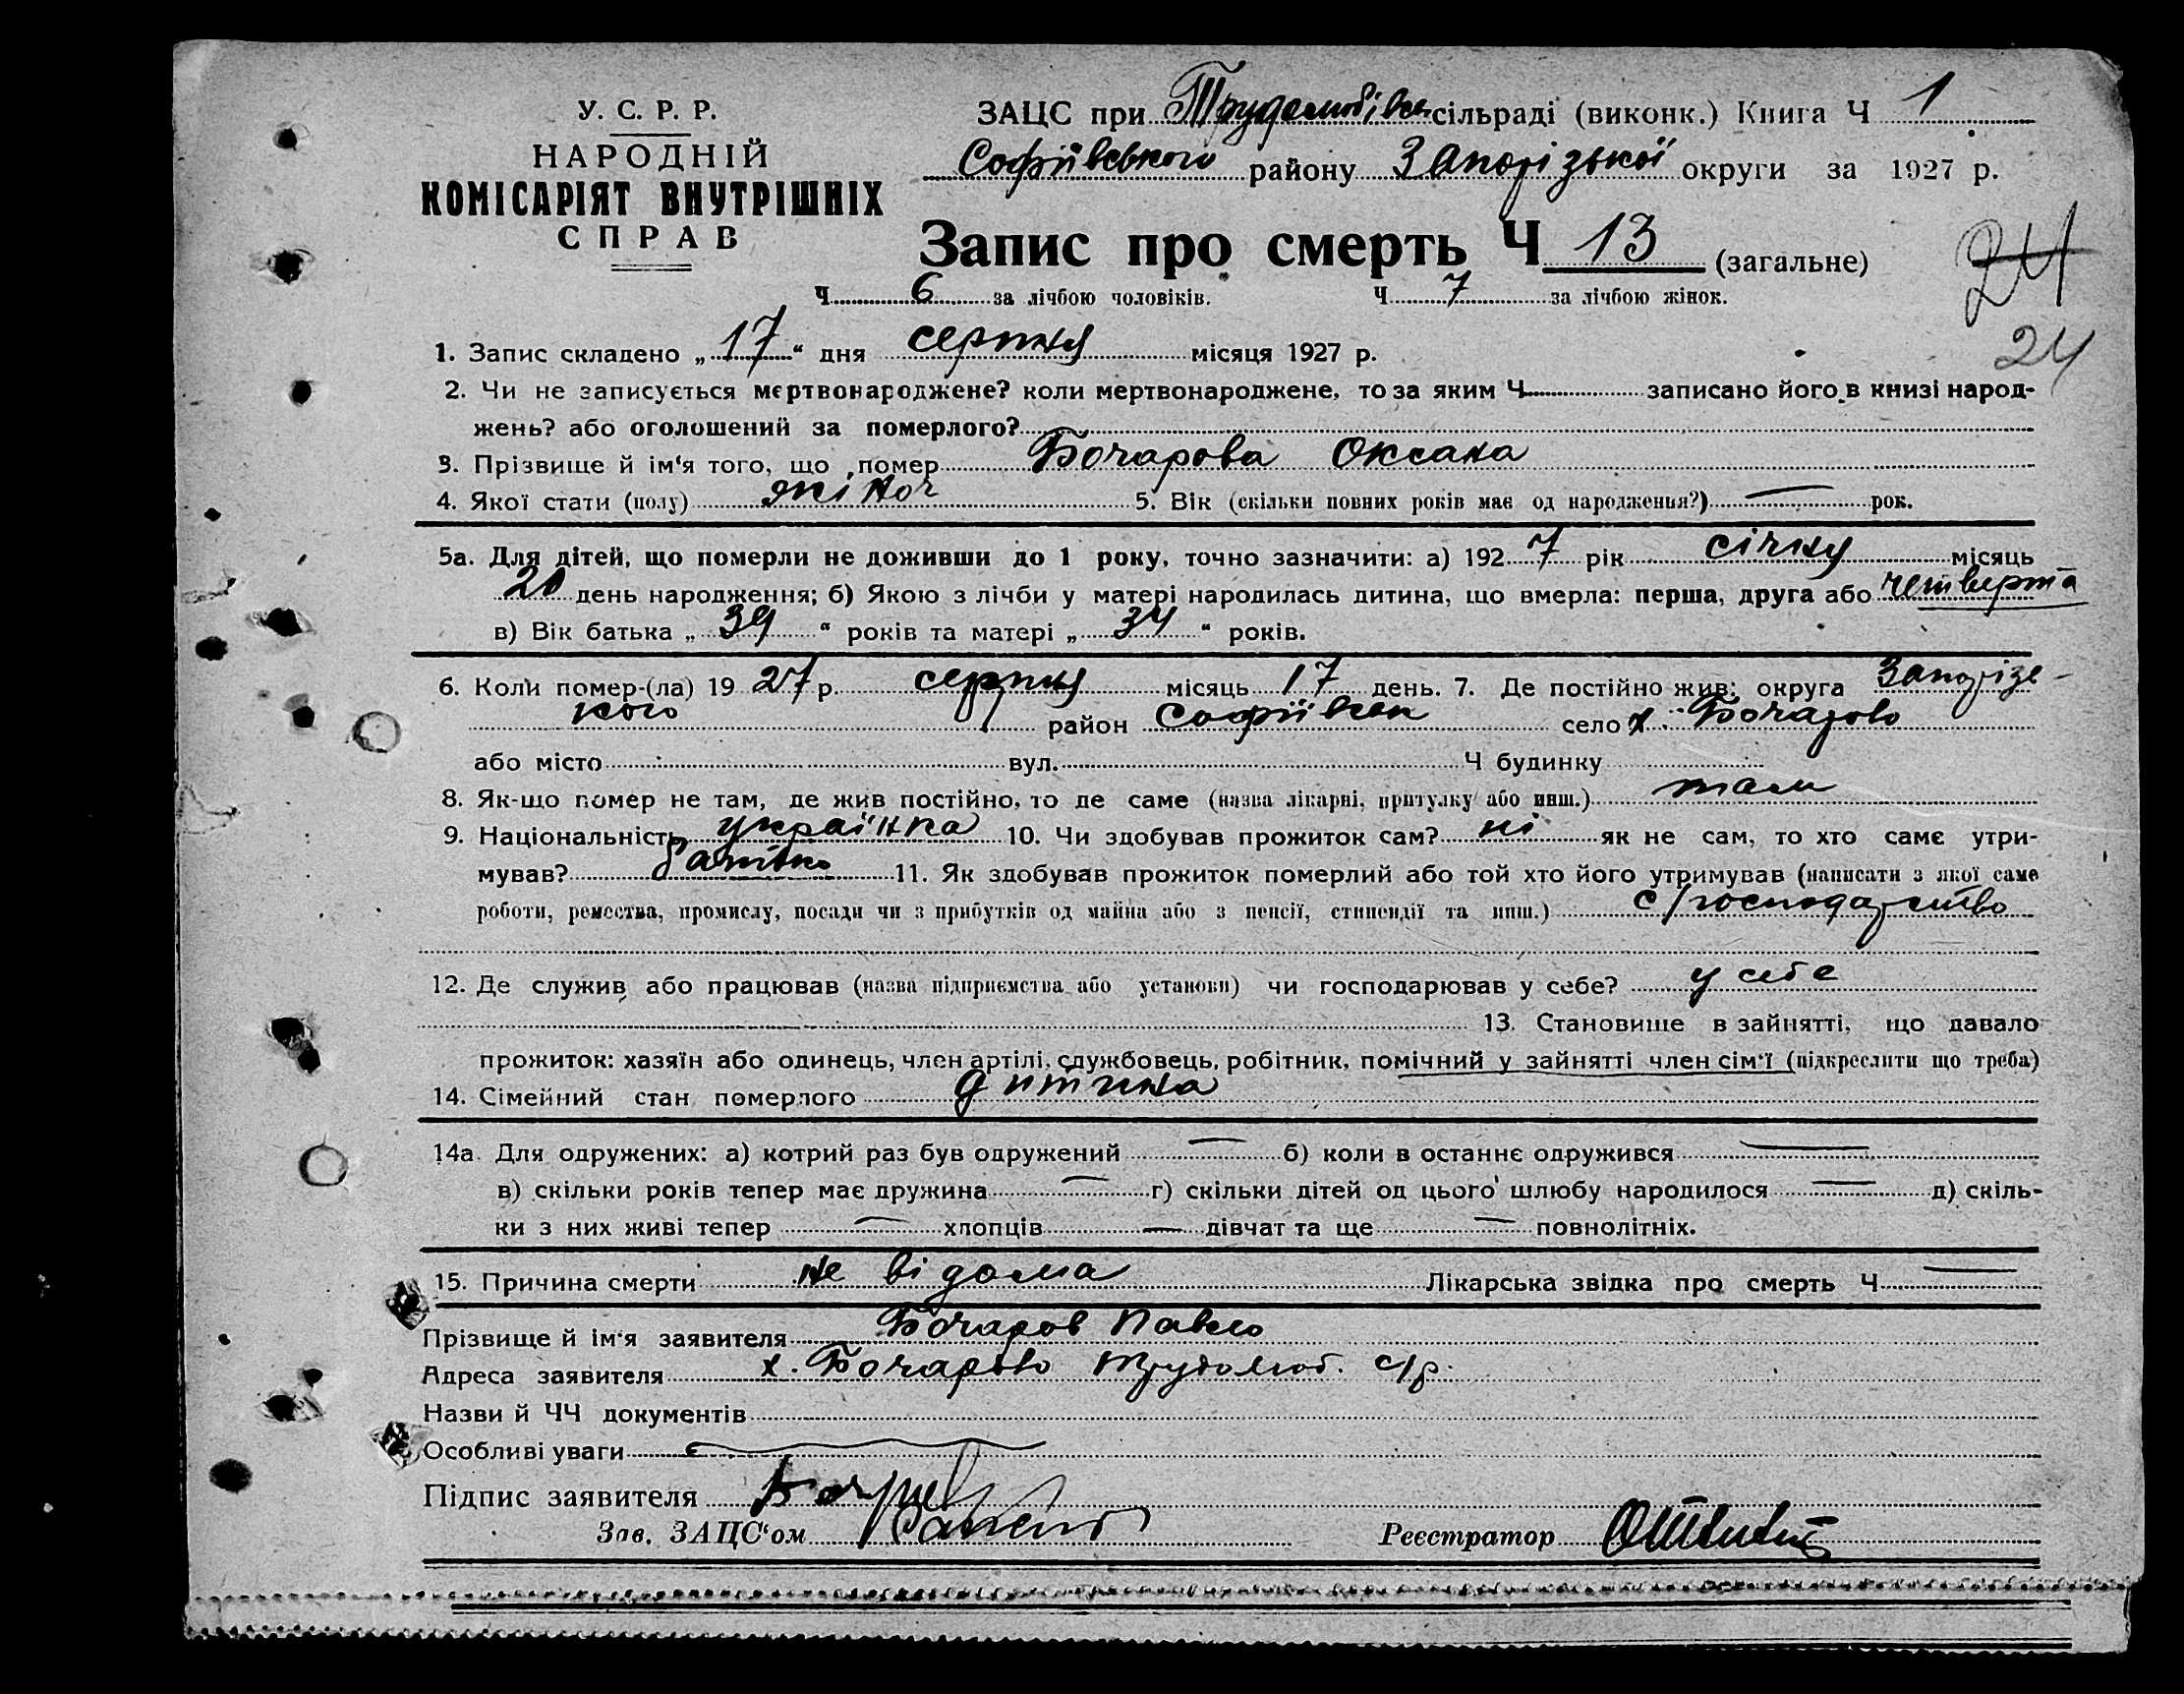 У. С. Р. Р.
НАРОДНІЙ
КОМІСАРІЯТ ВНУТРІШНІХ
СПРАВ
ЗАЦС при Трудолюбівськ сільраді (виконк.) Книга Ч 1
Софіївського району Запорізької округи за 1927 р.
Запис про смерть Ч 13 (загальне)
24
Ч 6 за лічбою чоловіків. Ч 7 за лічбою жінок.
24
1. Запис складено „ 17 “ дня серпня місяця 1927 р.
2. Чи не записується мертвонароджене? коли мертвонароджене, то за яким Ч записано його в книзі народ-
жень? або оголошений за померлого?
3. Прізвище й ім‘я того, що помер Бочарова Оксана
4. Якої стати (полу) жіноч 5. Вік (скільки повних років має од народження?) — рок.
5а. Для дітей, що померли не доживши до 1 року, точно зазначити: а) 1927 рік січня місяць
20 день народження; б) Якою з лічби у матері народилась дитина, що вмерла: перша, друга або четверта
в) Вік батька „ 39 “ років та матері „ 34 “ років.
6. Коли помер-(ла) 1927 р. серпня місяць 17 день. 7. Де постійно жив: округа Запорізь-
кого район Софіївськ село х. Бочарово
або місто вул. Ч будинку
8. Як-що помер не там, де жив постійно, то де саме (назва лікарні, притулку або инш.) там
9. Національність українка 10. Чи здобував прожиток сам? ні як не сам, то хто саме утри-
мував? батько 11. Як здобував прожиток померлий або той хто його утримував (написати з якої саме
роботи, ремества, промислу, посади чи з прибутків од майна або з пенсії, стипендії та инш.) с/господарство
12. Де служив або працював (назва підприємства або установи) чи господарював у себе? у себе
13. Становище в зайнятті, що давало
прожиток: хазяїн або одинець, член артілі, службовець, робітник, помічний у зайнятті член сім‘ї (підкреслити що треба)
14. Сімейний стан померлого дитина
14а. Для одружених: а) котрий раз був одружений — б) коли в останнє одружився —
в) скільки років тепер має дружина — г) скільки дітей од цього шлюбу народилося — д) скіль-
ки з них живі тепер — хлопців — дівчат та ще — повнолітніх.
15. Причина смерти не відома Лікарська звідка про смерть Ч —
Прізвище й ім‘я заявителя Бочаров Павло
Адреса заявителя х. Бочарово Трудолюб. с/р.
Назви й ЧЧ документів
Особливі уваги
Підпис заявителя
Зав. ЗАЦС‘ом Реєстратор